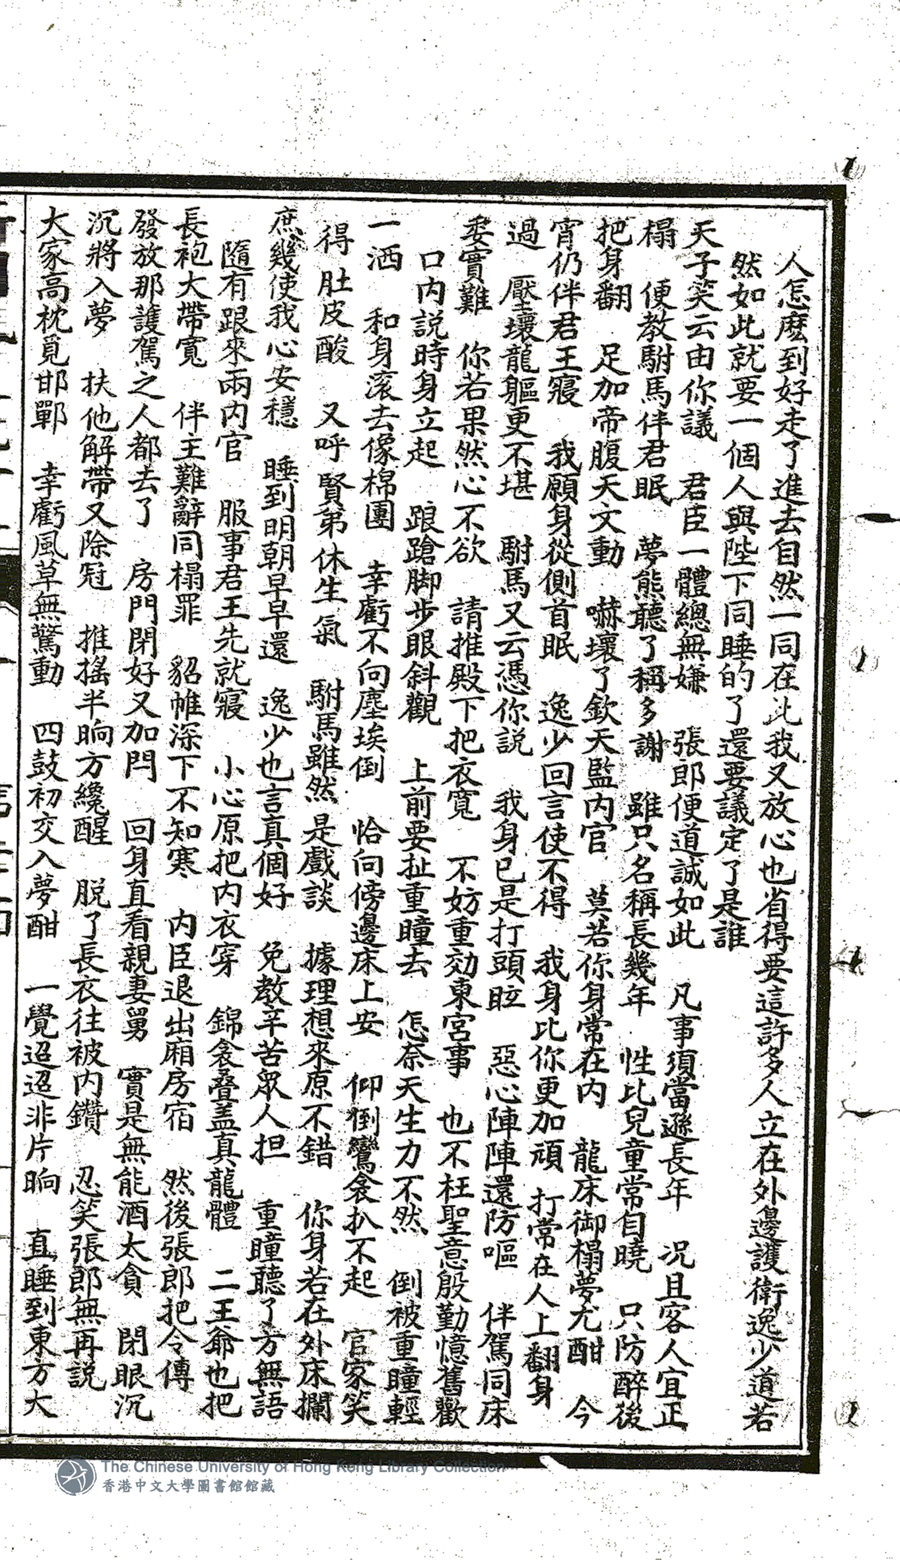 人怎麽到好走了進去自然一同在此我又放心也省得要這許多人立在外邊護衛逸少道若
然如此就要一個人與陛下同睡的了還要議定了是誰
天子笑云由你議　君臣一體總無嫌　張郎便道誠如此　凡事須當遜長年　況且客人宜正
榻　便教駙馬伴君眠　夢熊聽了稱多謝　雖只名稱長幾年　性比兒童常自曉　只防醉後
把身翻　足加帝腹天文動　嚇壞了欽天監内官　莫若你身常在内　龍床御榻夢尤酣　今
宵仍伴君王寢　我願身從側首眠　逸少回言使不得　我身比你更加頑　打常在人上翻身
過　壓壞龍軀更不堪　駙馬又云憑你說　我身已是打頭眩　惡心陣陣還防嘔　伴駕同床
委實難　你若果然心不欲　請推殿下把衣寬　不妨重効東宮事　也不枉聖意殷勤憶舊歡
口内説時身立起　踉蹌脚步眼斜觀　上前要扯重瞳去　怎奈天生力不然　倒被重瞳輕
一洒　和身滚去像棉團　幸虧不向塵埃倒　恰向傍邊床上安　仰倒鸞衾扒不起　官家笑
得肚皮酸　又呼賢弟休生氣　駙馬雖然是戲談　據理想來原不錯　你身若在外床攔
庶幾使我心安穩　睡到明朝早早還　逸少也言真個好　免教辛苦眾人担　重瞳聽了方無語
隨有跟來兩内官　服事君王先就寢　小心原把内衣穿　錦衾叠盖真龍體　二王爺也把
長袍大帶寬　伴王難辭同榻罪　貂帷深下不知寒　内臣退出廂房宿　然後張郎把令傳
發放那護駕之人都去了　房門閉好又加閂　回身直看親妻舅　實是無能酒太貪　閉眼沉
沉將入夢　扶他解帶又除冠　推搖半晌方纔醒　脱了長衣往被内鑽　忍笑張郎無再説
大家高枕覓邯鄲　幸虧風草無驚動　四鼓初交入夢酣　一覺迢迢非片晌　直睡到東方大
The Chinese University of Hong Kong Library Collection
香港中文大學圖書館館藏